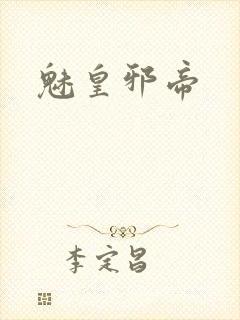 魅皇邪帝
李定昌